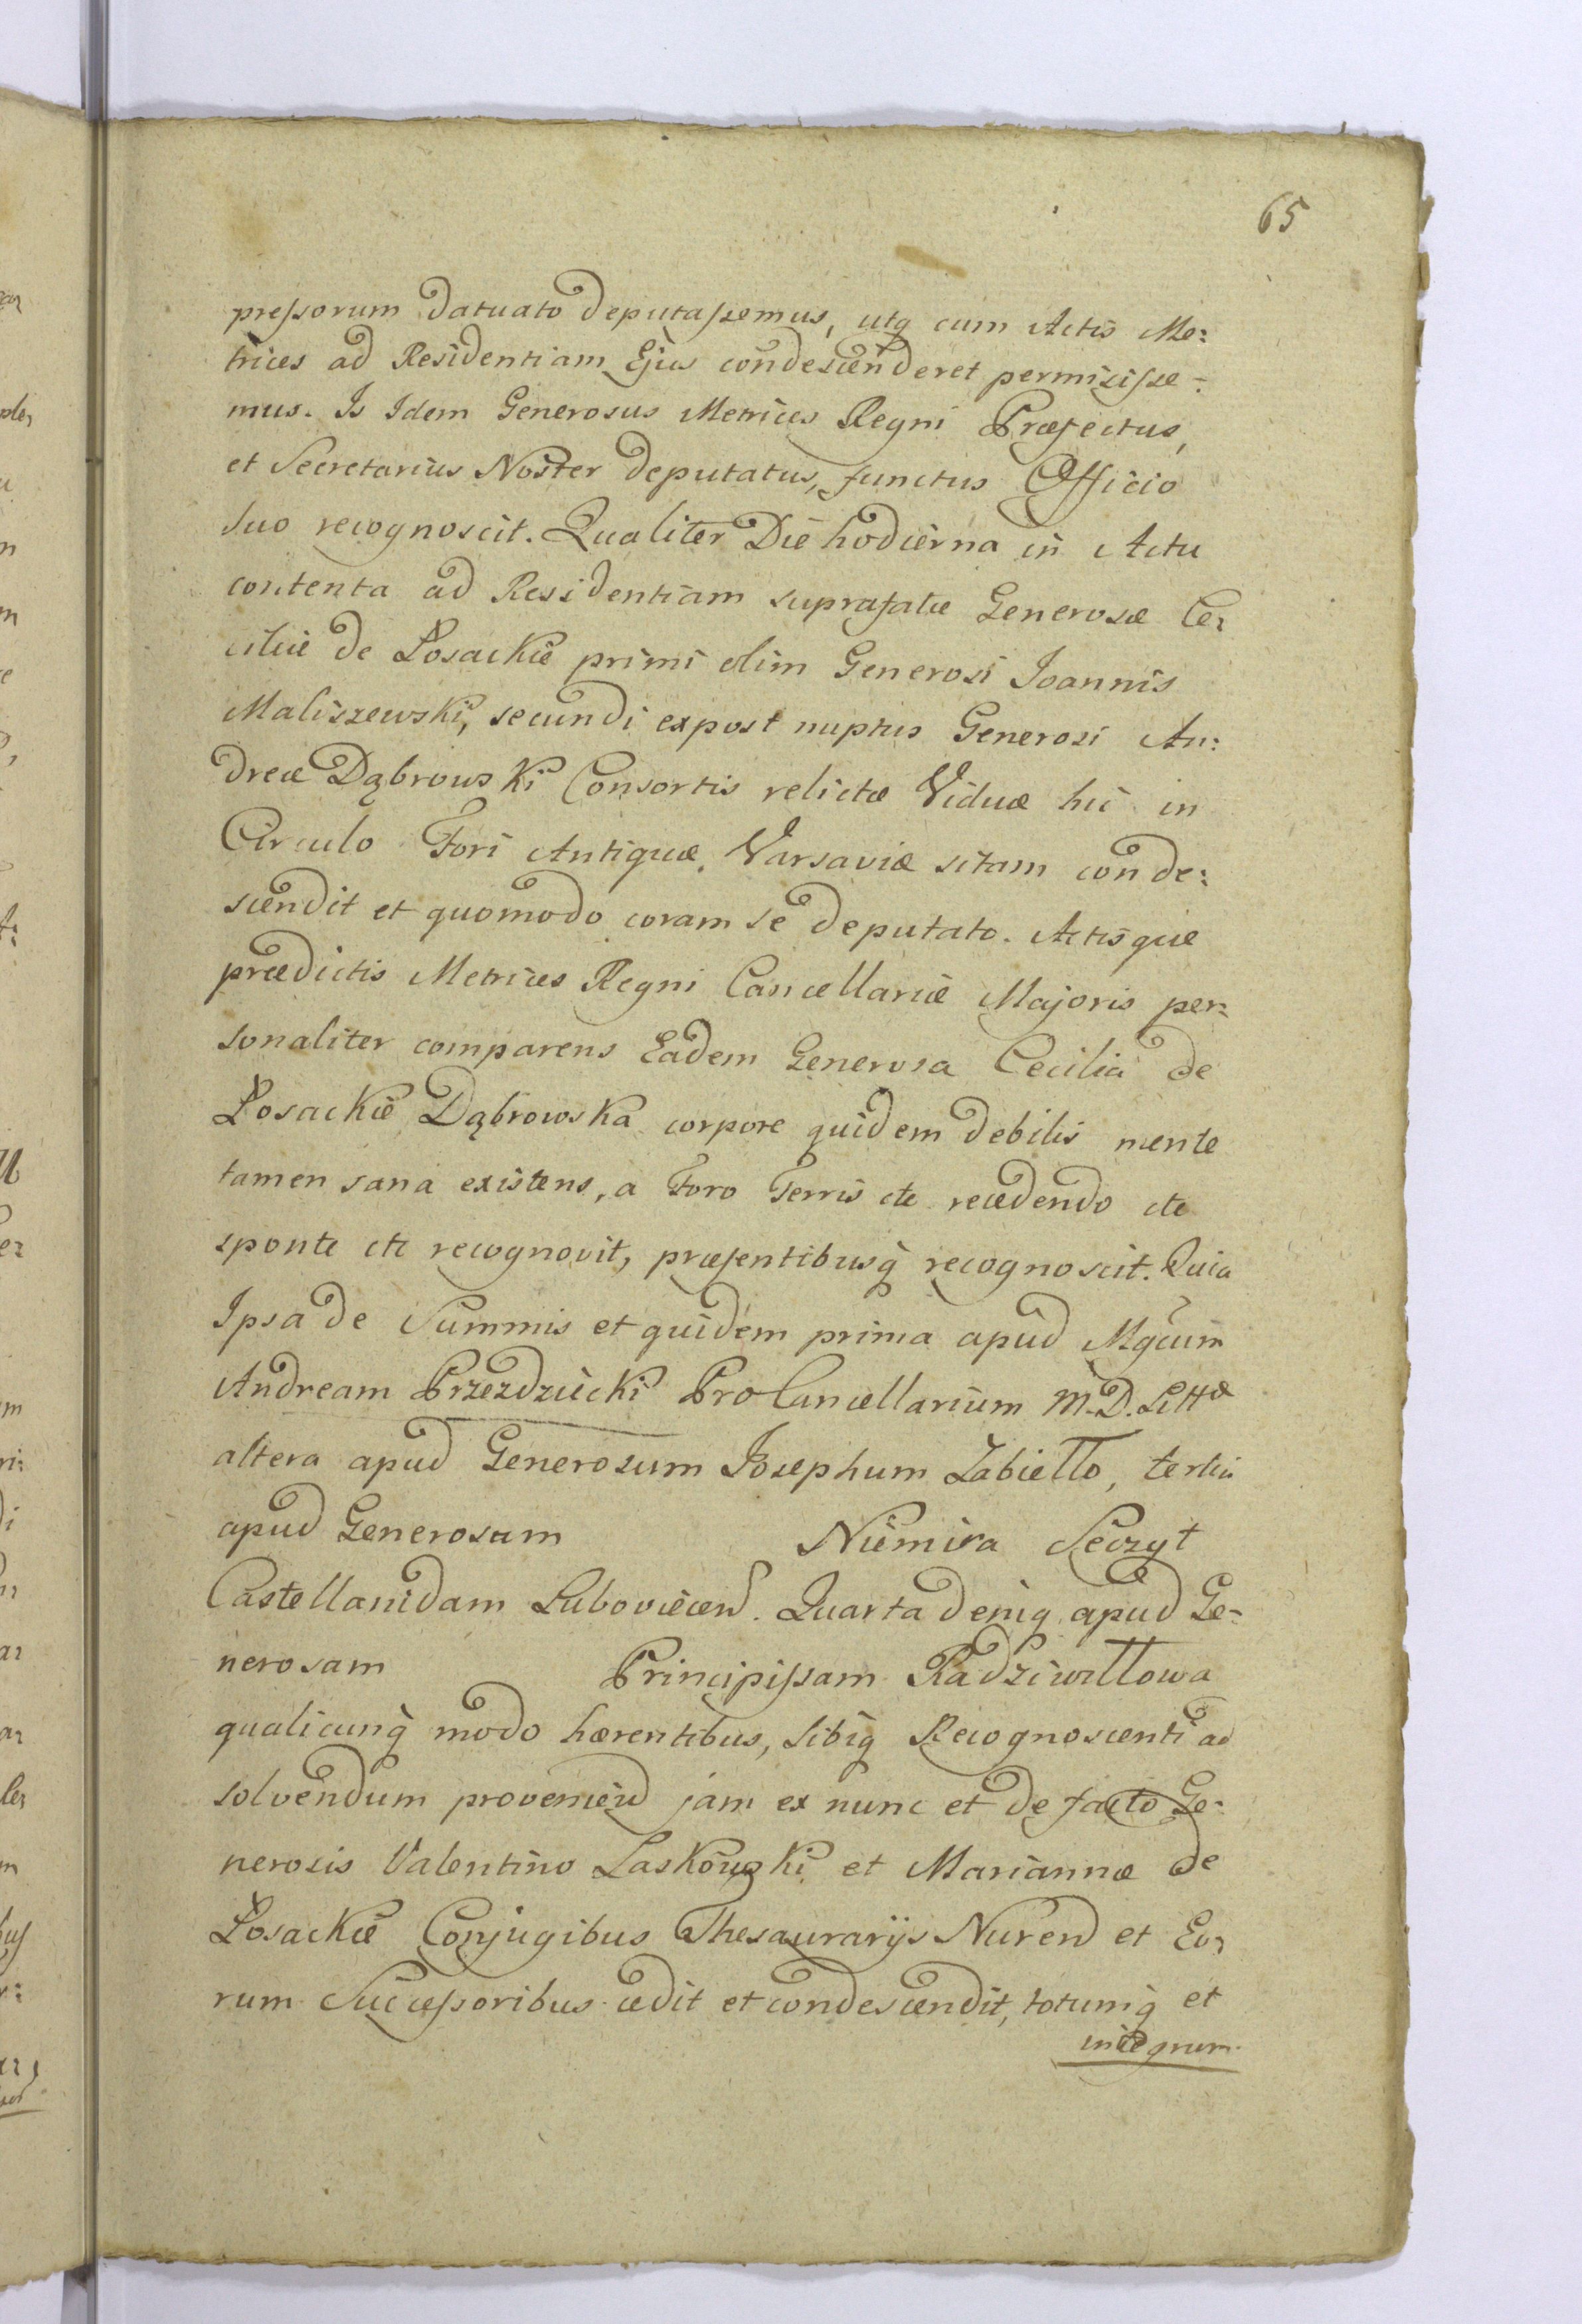 65
pressorum datuato deputassemus, utq cum Actis Me:
trices ad Residentiam Ejus condescenderet permisisse:
mus. Is Idem Generosus Metrices Regni Præfectus,
et Secretarius Noster deputatus, functus Officio
suo recognoscit. Qualiter Die hodierna in Actu
contenta ad Residentiam suprafatæ Generosæ Ce:
ciliæ de Łosackie primi olim Generosi Joannis
Maliszewski, secundi expost nuptus Generosi An:
dreæ Dąbrowski Consortis relictæ Viduæ hic in
Circulo Fori Antiquæ Varsaviæ sitam conde:
scendit et quomodo coram se deputato. Actisque
prædictis Metrices Regni Cancellariæ Majoris per:
sonaliter comparens Eadem Generosa Cecilia de
Łosackie Dąbrowska corpore quidem debilis mente
tamen sana existens, a Foro Terris etc recedendo etc
sponte etc recognovit, præsentibusq recognoscit. Quia
Ipsa de Summis et quidem prima apud Mgcum
Andream Przezdziecki ProCancellarium M. D. Litt̃æ
altera apud Generosum Josephum Zabiełło, tertia
apud Generosam Niemira Seczyt
Castellanidam Lubovicen. Quarta deniq apud Ge:
nerosam Principissam Radziwiłłowa
qualicunq modo hærentibus, sibiq Recognoscenti ad
solvendum provenien jam ex nunc et de facto Ge:
nerosis Valentino Laskowski et Mariannæ de
Łosackie Conjugibus Thesaurarijs Nuren et Eo:
rum Successoribus cedit et condescendit, totumq et
integrum